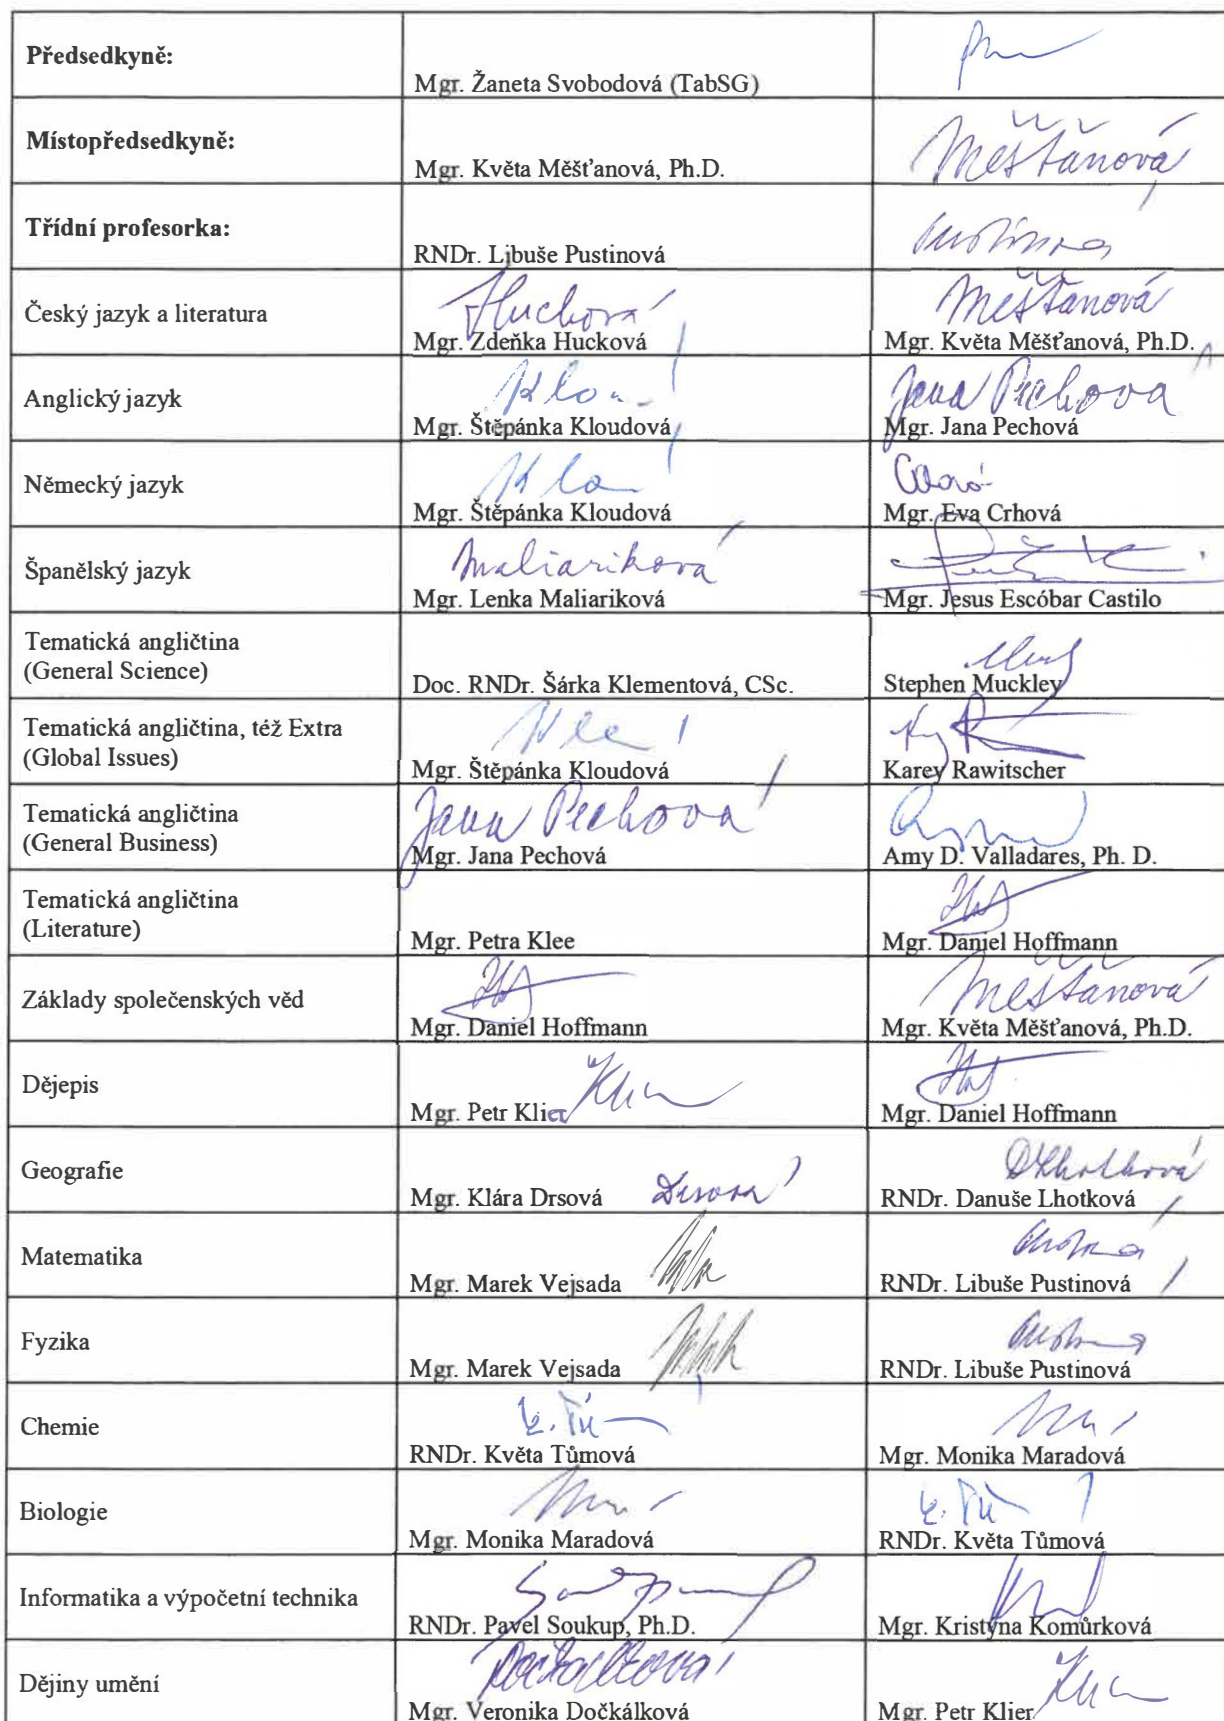 Předsedkyně:
Mgr. Žaneta Svobodová (TabSG)
Místopředsedkyně:
Mgr. Květa Měšťanová, Ph.D.
Měšťanová
Třídní profesorka:
RNDr. Libuše Pustinová
Pustinová
Český jazyk a literatura
Hucková
Měšťanová
Mgr. Zdeňka Hucková
Mgr. Květa Měšťanová, Ph.D.
Anglický jazyk
Jana Pechová
Mgr. Štěpánka Kloudová
Mgr. Jana Pechová
Německý jazyk
Mgr. Štěpánka Kloudová
Mgr. Eva Crhová
Španělský jazyk
Maliariková
Mgr. Lenka Maliariková
Mgr. Jesus Escóbar Castilo
Tematická angličtina
(General Science)
Doc. RNDr. Šárka Klementová, CSc.
Stephen Muckley
Tematická angličtina, též Extra
(Global Issues)
Mgr. Štěpánka Kloudová
Karey Rawitscher
Tematická angličtina
(General Business)
Jana Pechová
Mgr. Jana Pechová
Amy D. Valladares, Ph. D.
Tematická angličtina
(Literature)
Mgr. Petra Klee
Mgr. Daniel Hoffmann
Základy společenských věd
Měšťanová
Mgr. Daniel Hoffmann
Mgr. Květa Měšťanová, Ph.D.
Dějepis
Mgr. Petr Klier
Mgr. Daniel Hoffmann
Geografie
Mgr. Klára Drsová
Drsová
DLhotková
RNDr. Danuše Lhotková
Matematika
Mgr. Marek Vejsada
RNDr. Libuše Pustinová
Fyzika
Mgr. Marek Vejsada
RNDr. Libuše Pustinová
Chemie
RNDr. Květa Tůmová
Mgr. Monika Maradová
Biologie
Mgr. Monika Maradová
RNDr. Květa Tůmová
Informatika a výpočetní technika
RNDr. Pavel Soukup, Ph.D.
Mgr. Kristýna Komůrková
Dějiny umění
Dočkálková
Mgr. Veronika Dočkálková
Mgr. Petr Klier